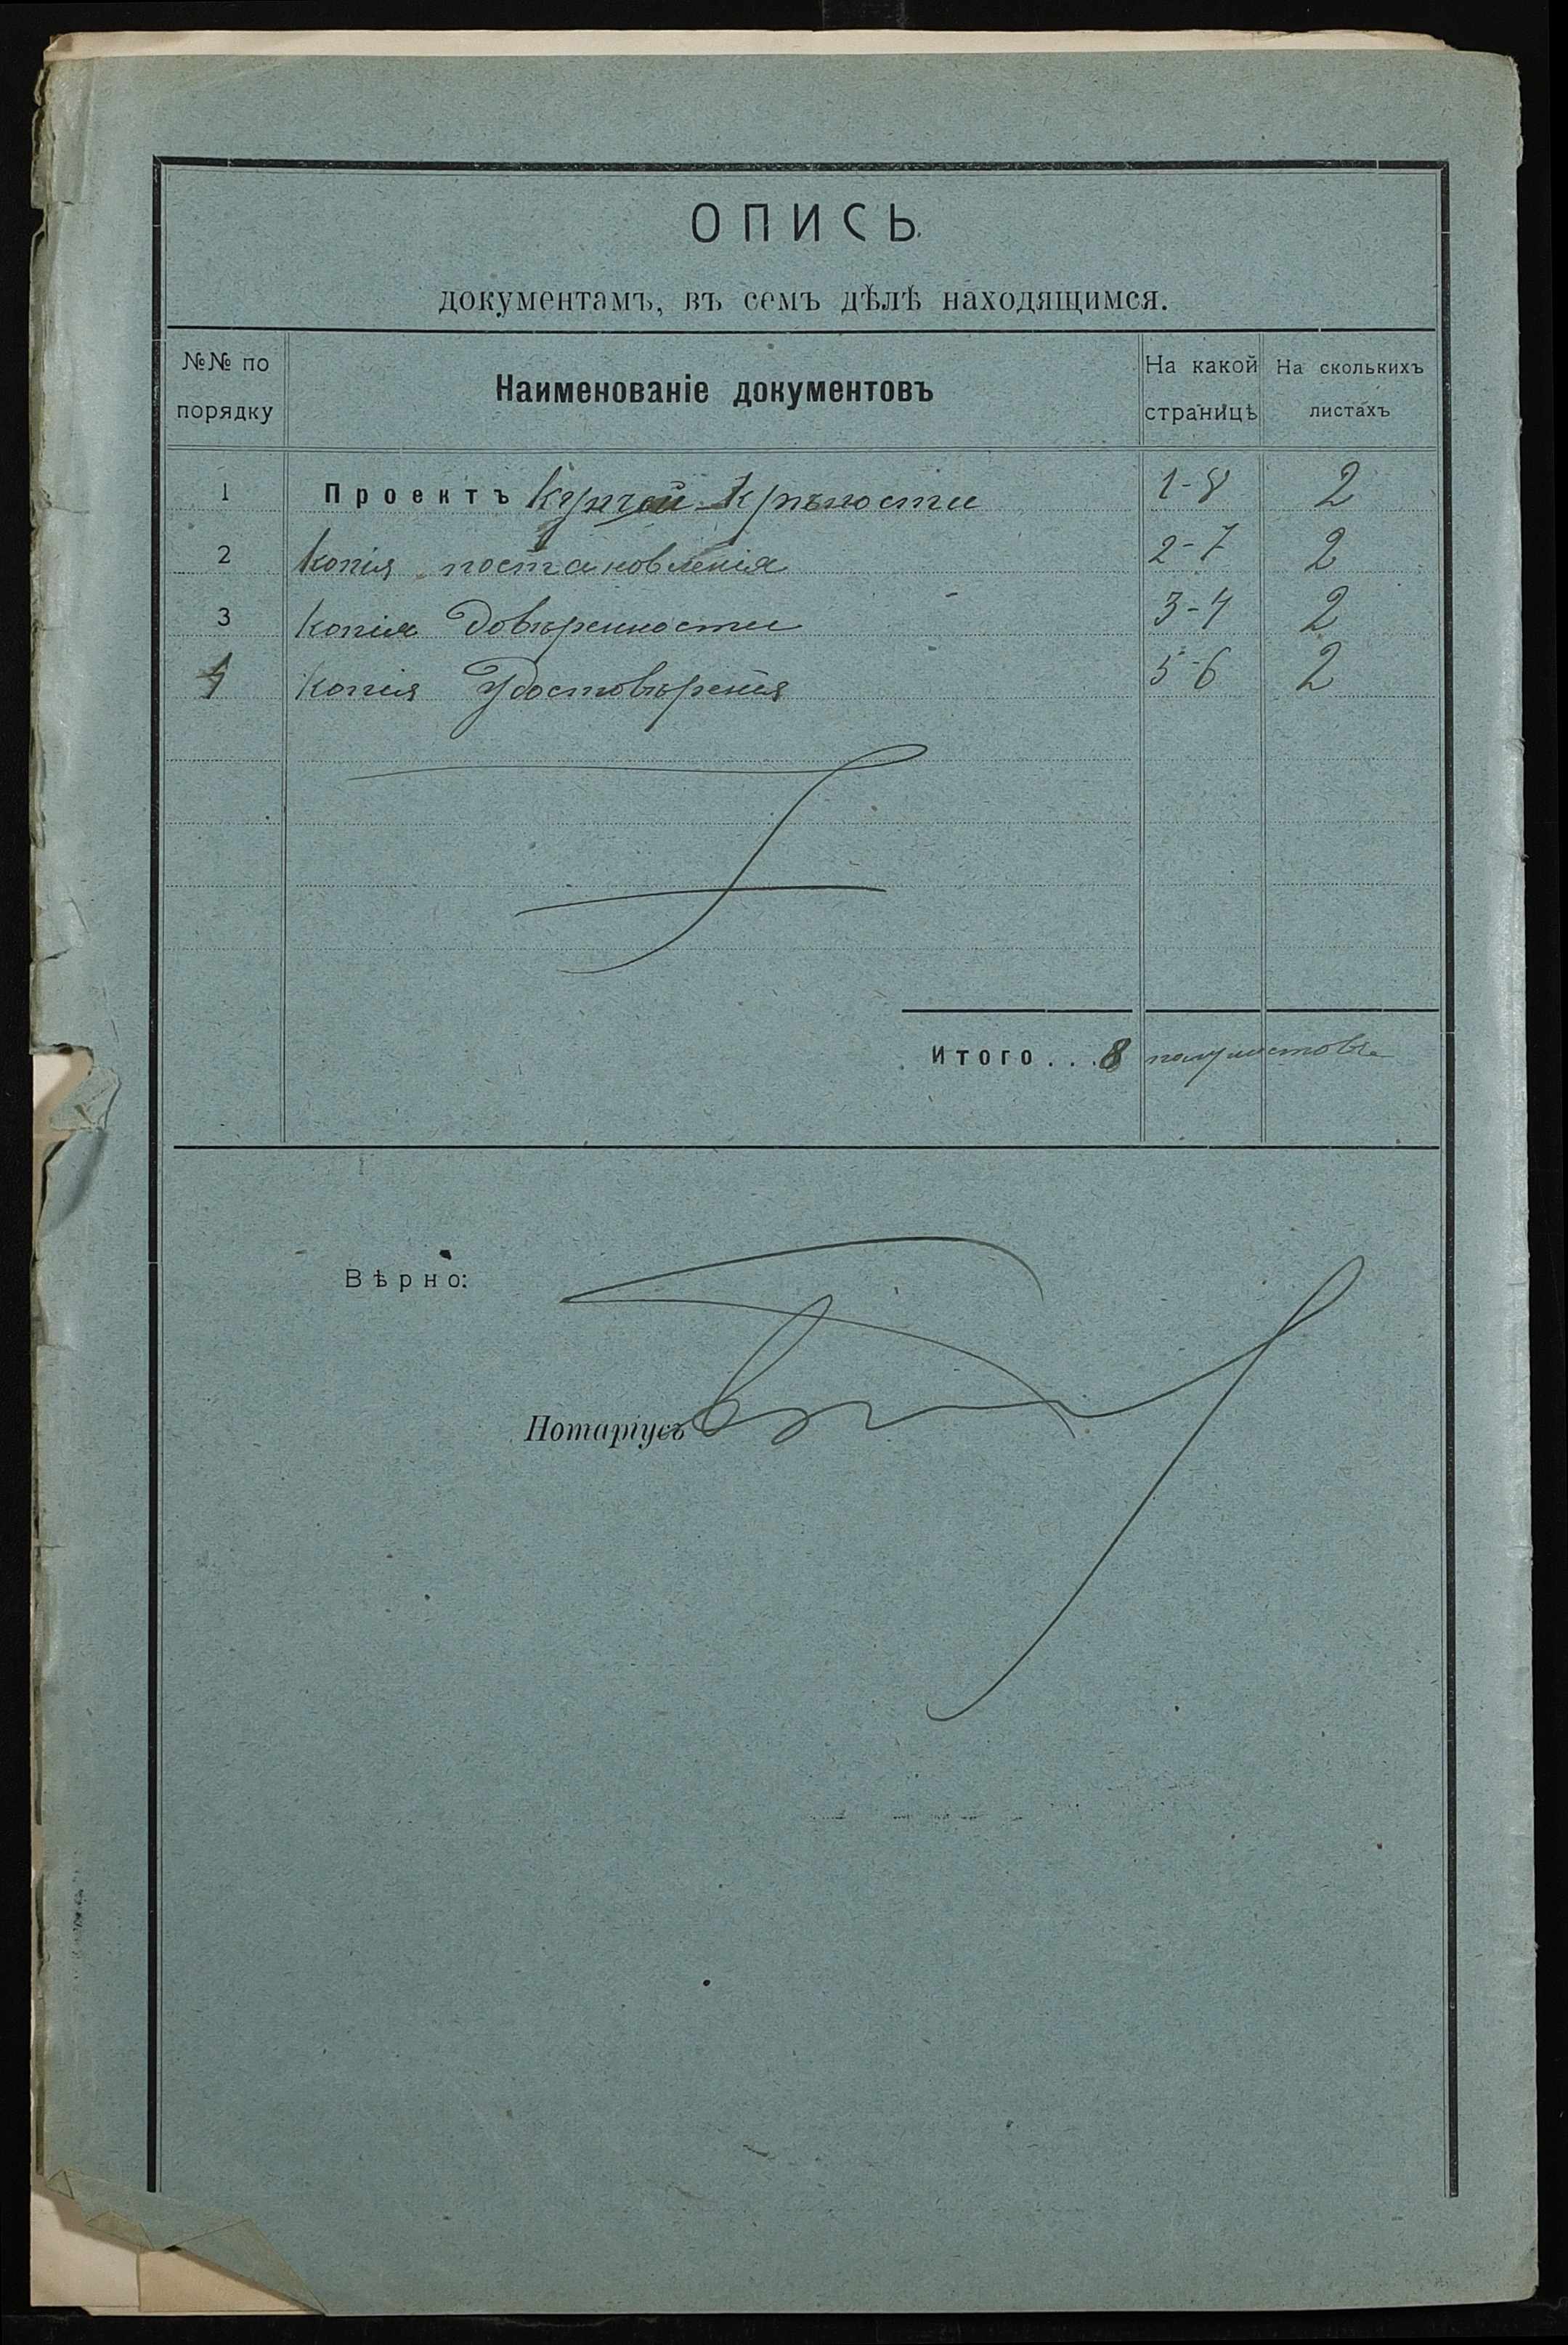 ОПИСЬ
документамъ, въ семъ дѣлѣ находящимся.
№№ по порядку | Наименованіе документовъ | На какой страницѣ | На сколькихъ листахъ
1 | Проектъ Купчей Крѣпости | 1-8 | 2
2 | Копія постановленія | 2-7 | 2
3 | Копія Довѣренности | 3-4 | 2
4 | Копія Удостовѣренія | 5-6 | 2
Итого... 8 полулистовъ
Вѣрно:
Нотаріусъ